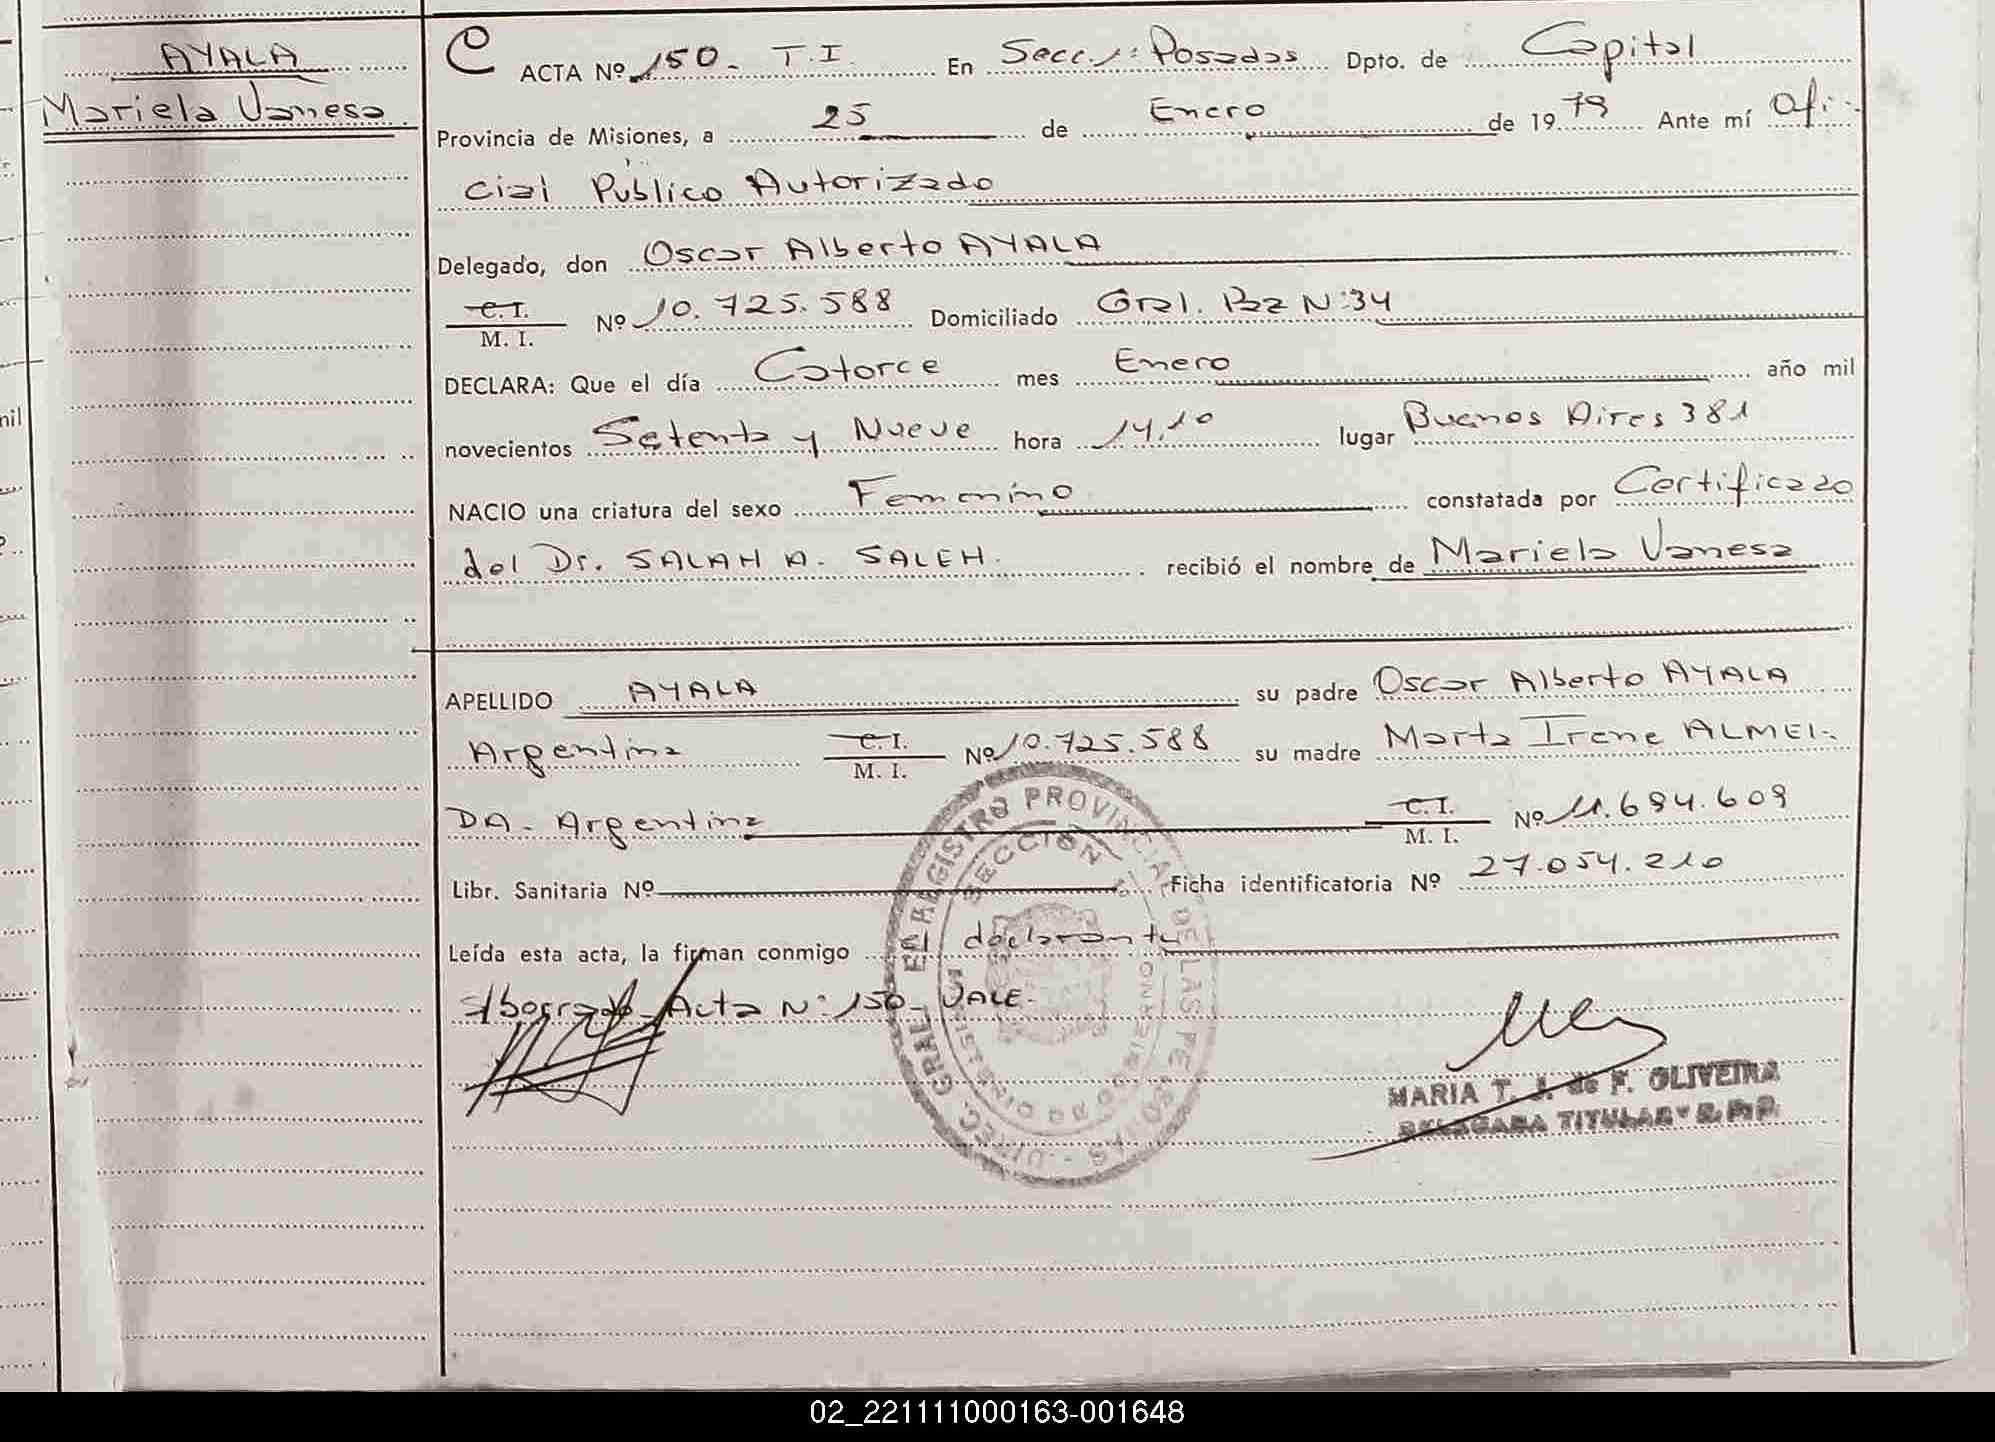 AYALA
Mariela Vanesa
C ACTA Nº 150- T.I. En Secc. 1: Posadas Dpto. de Capital
Provincia de Misiones, a 25 de Enero de 1979 Ante mí Ofi-
cial Público Autorizado
Delegado, don Oscar Alberto AYALA
C. I.
M. I. Nº 10.725.588 Domiciliado Gral. Paz N:34
DECLARA: Que el día Catorce mes Enero año mil
novecientos Setenta y Nueve hora 14,10 lugar Buenos Aires 381
NACIO una criatura del sexo Femenino constatada por Certificado
del Dr. SALAH A. SALEH. recibió el nombre de Mariela Vanesa
APELLIDO AYALA su padre Oscar Alberto AYALA
Argentina C. I.
M. I. Nº 10.725.588 su madre Marta Irene ALMEI-
DA- Argentina C. I.
M. I. Nº 11.694.609
Libr. Sanitaria Nº Ficha identificatoria Nº 27.054.210
Leída esta acta, la firman conmigo el declarante
S/borrado- Acta N: 150- VALE.
DIREC. GRAL. EL REGISTRO PROVINCIAL DE LAS PERSONAS
SECCION 1
MARIA T. J. de F. OLIVEIRA
DELEGADA TITULAR
02_221111000163-001648